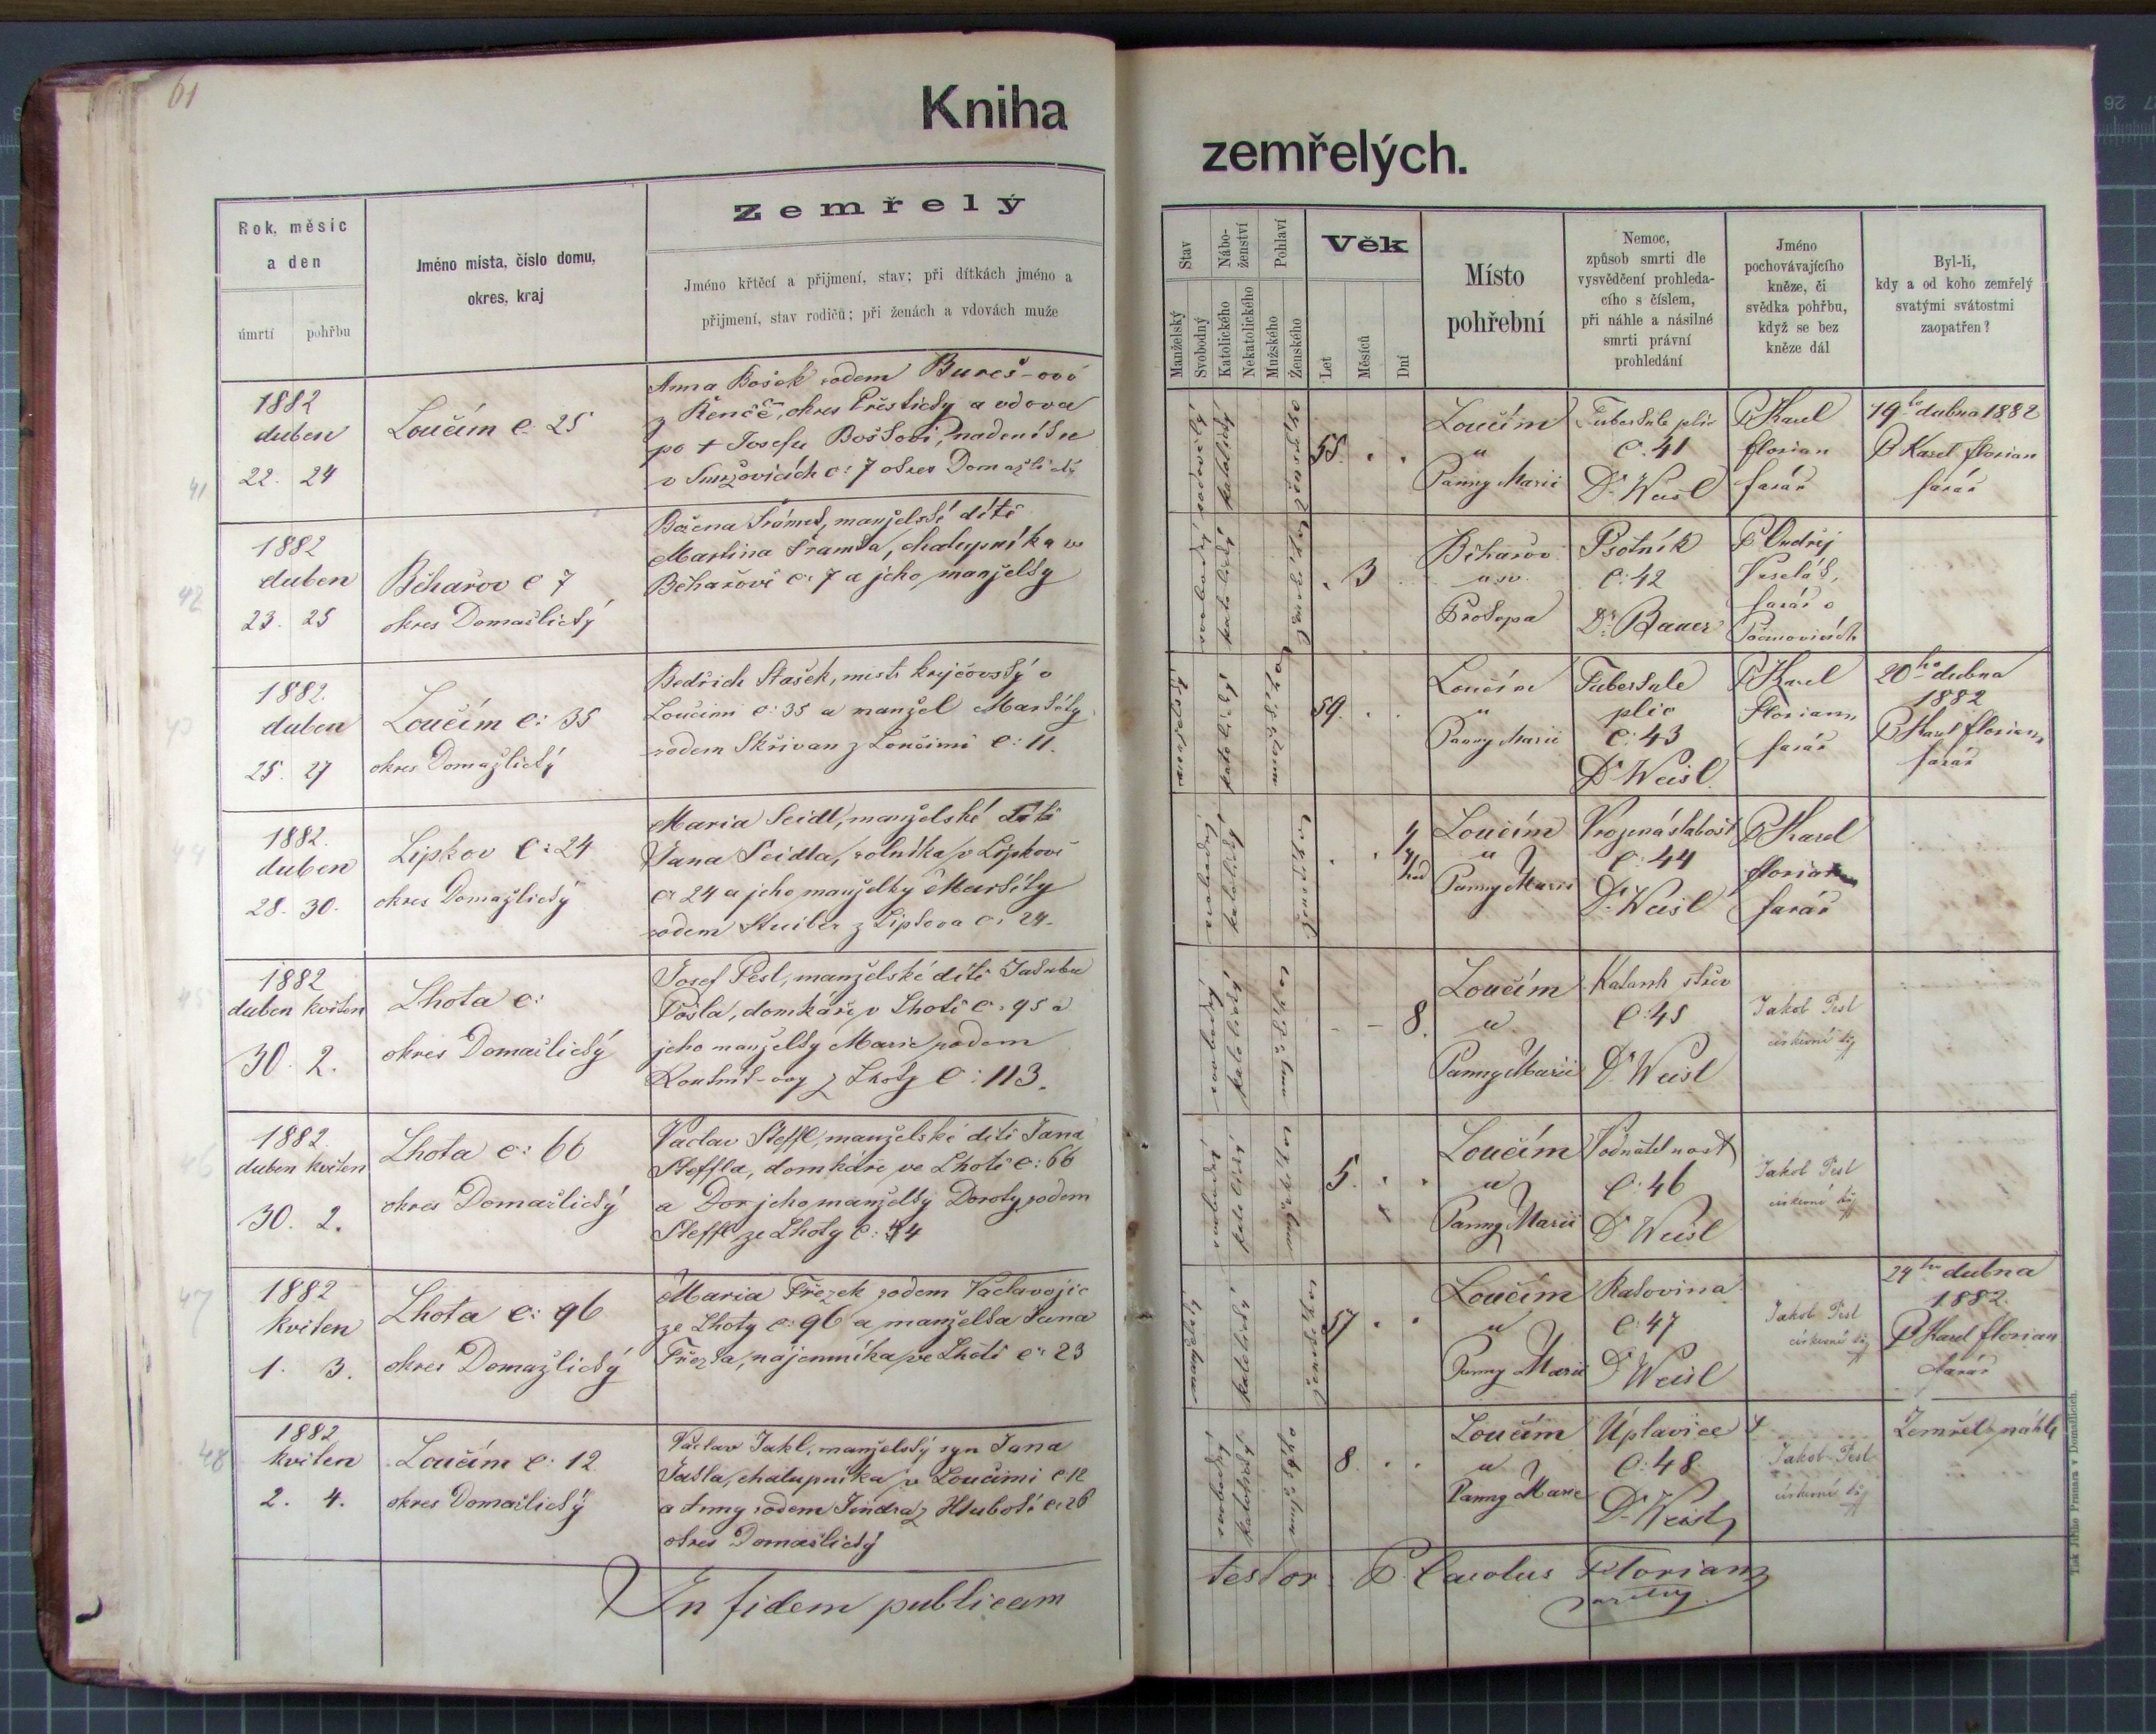 61
Kniha
zemřelých.
Rok, měsíc
a den
úmrtí
pohřbu
Jméno místa, číslo domu,
okres, kraj
Zemřelý
Jméno křtěcí a přijmení, stav; při dítkách jméno a
přijmení, stav rodičů; při ženách a vdovách muže
Stav
Manželský
Svobodný
Nábo-
ženství
Katolického
Nekatolického
Pohlaví
Mužského
Ženského
Věk
Let
Měsíců
Dní
Místo
pohřební
Nemoc,
způsob smrti dle
vysvědčení prohleda-
cího s číslem,
při náhle a násilné
smrti právní
prohledání
Jméno
pochovávajícího
kněze, či
svědka pohřbu,
když se bez
kněze dál
Byl-li,
kdy a od koho zemřelý
svatými svátostmi
zaopatřen?
41
1882
duben
22. 24
Loučím č. 25
Anna Bošek rodem Bureš-ová
z Řenče, okres Přestický a vdova
po + Josefu Boškovi, nadeníku
v Smržovicích č: 7 okres Domažlický
katolický
ženského
58. . .
Loučím
u
Panny Marii
Tuberkule plic
č. 41
Dr Weisl
P Karel
Florian
farář
19ho dubna 1882
P Karel Florian
farář
42
1882
duben
23. 25
Běhařov č 7
okres Domažlický
Božena Šrámek, manželské dítě
Martina Šramka, chalupníka v
Běhařově č: 7 a jeho manželky
svobodný
katolický
ženského
. 3 .
Běhařov
u sv.
Prokopa
Psotník
č: 42
Dr. Bauer
P Ondřej
Veselák,
farář v
Pocinovicích
43
1882.
duben
25. 27
Loučím č: 35
okres Domažlický
Bedřich Stašek, mistr krejčovský v
Loučimi č: 35 a manžel Markéty
rodem Skřivan z Loučimě č: 11.
katolický
mužského
59. . .
Loučím
u
Panny Marii
Tuberkule
plic
č: 43
Dr Weisl.
P Karel
Florian,
farář
20ho dubna
1882
P Karel Florian,
farář
44
1882.
duben
28. 30.
Lipkov č: 24
okres Domažlický
Maria Seidl, manželské dítě
Jana Seidla, rolníka v Lipkově
č: 24 a jeho manželky Markéty
rodem Stuiber z Lipkova č: 24.
svobodný
katolický
ženského
Loučím
u
Panny Marii
Vrozená slabost
č: 44
Dr Weisl
P Karel
Florian
farář
45
1882
duben květen
30. 2.
Lhota č:
okres Domažlický
Josef Pesl, manželské dítě Jakuba
Pösla, domkáře v Lhotě č: 95 a
jeho manželky Marie rodem
z Lhoty č: 113.
svobodný
katolický
mužského
- - 8.
Loučím
u
Panny Marii
Katarrh střev
č: 45
Dr Weisl
Jakob Pesl
církevní
46
1882.
duben květen
30. 2.
Lhota č: 66
okres Domažlický
Vaclav Steffl, manželské dítě Jana
Steffla, domkáře, ve Lhotě č: 66
a Dor jeho manželky Doroty rodem
Steffl ze Lhoty č: 44
svobodný
katolický
mužského
5. . .
Loučím
u
Panny Marii
Vodnatelnost
č: 46
Dr Weisl
Jakob Pesl
církevní
47
1882
květen
1. 3.
Lhota č: 96
okres Domažlický
Maria Frezek rodem Václavovic
ze Lhoty č: 96 a manželka Jana
Frezka, nájemníka ve Lhotě č: 23
katolický
ženského
57 . .
Loučím
u
Panny Marii
Rakovina
č: 47
Dr Weisl
Jakob Pesl
církevní
24ho dubna
1882.
P Karel Florian
farář
48
1882
květen
2. 4.
Loučím č: 12
okres Domažlický
Václav Jakl, manželský syn Jana
Jakla, chalupníka v Loučimi č 12
a Anny rodem Jindra z Hluboké č: 26
okres Domažlický
svobodný
katolický
mužského
8 . .
Loučím
u
Panny Marie
Úplavice
č: 48
Dr Weisl
Jakob Pesl
církevní
Zemřel náhle
In fidem publicam
testor P. Carolus Florian
Tisk Jiřího Prunara v Domažlicích.